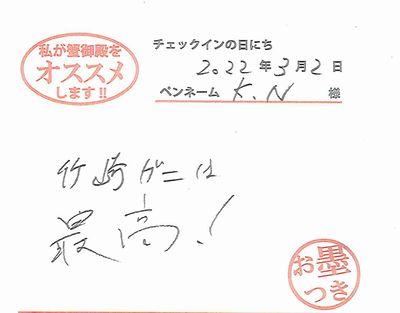 私が蟹御殿を
オススメ
します!!
チェックインの日にち
2022年3月2日
ペンネーム K.N 様
竹崎ガニは
最高!
お墨
つき